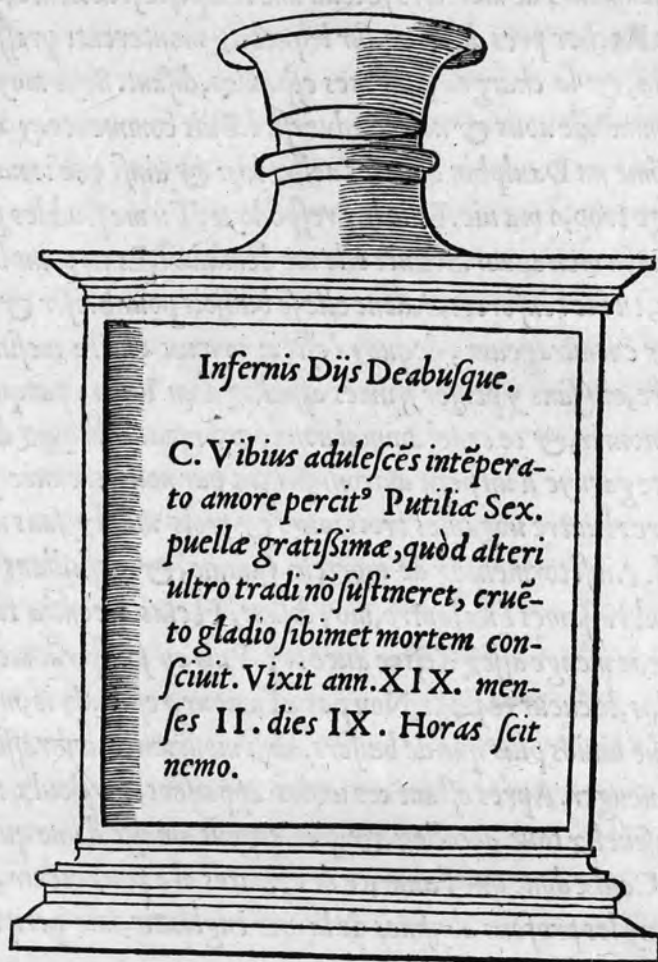 Infernis Dijs Deabuſque.
C. Vibius aduleſcēs intēpera-
to amore percitꝰ Putiliæ Sex.
puellæ gratiſsimæ, quòd alteri
ultro tradi nō ſuſtineret, crue-
to gladio ſibimet mortem con-
ſciuit. Vixit ann. XIX. men-
ſes II. dies IX. Horas ſcit
nemo.